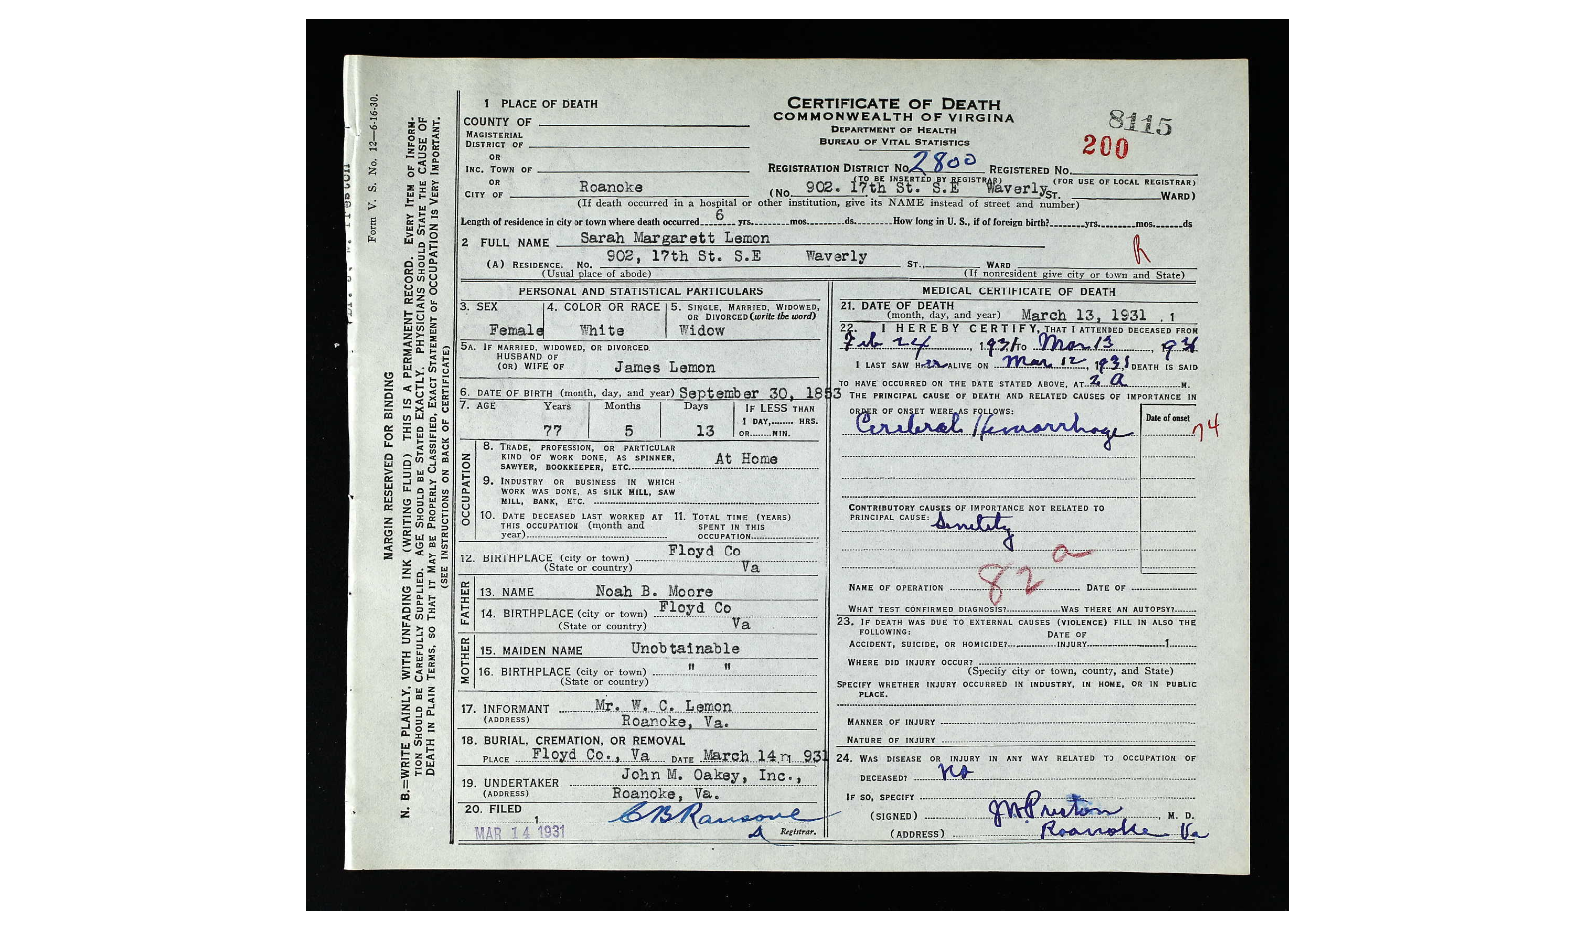 Form V. S. No. 12—6-16-30.
MARGIN RESERVED FOR BINDING
N. B.—WRITE PLAINLY, WITH UNFADING INK (WRITING FLUID) THIS IS A PERMANENT RECORD. EVERY ITEM OF INFORM-
TION SHOULD BE CAREFULLY SUPPLIED. AGE SHOULD BE STATED EXACTLY. PHYSICIANS SHOULD STATE THE CAUSE OF
DEATH IN PLAIN TERMS, SO THAT IT MAY BE PROPERLY CLASSIFIED. EXACT STATEMENT OF OCCUPATION IS VERY IMPORTANT.
(SEE INSTRUCTIONS ON BACK OF CERTIFICATE)
CERTIFICATE OF DEATH
COMMONWEALTH OF VIRGINA
DEPARTMENT OF HEALTH
BUREAU OF VITAL STATISTICS
8115
200
1 PLACE OF DEATH
COUNTY OF
MAGISTERIAL
DISTRICT OF
OR
INC. TOWN OF
REGISTRATION DISTRICT NO. 2800 REGISTERED NO.
(TO BE INSERTED BY REGISTRAR) (FOR USE OF LOCAL REGISTRAR)
OR
CITY OF Roanoke (No. 902. 17th St. S.E Waverly ST. WARD)
(If death occurred in a hospital or other institution, give its NAME instead of street and number)
Length of residence in city or town where death occurred 6 yrs. mos. ds. How long in U. S., if of foreign birth? yrs. mos. ds
2 FULL NAME Sarah Margarett Lemon
R
(A) RESIDENCE. No. 902, 17th St. S.E Waverly ST., WARD
(Usual place of abode) (If nonresident give city or town and State)
PERSONAL AND STATISTICAL PARTICULARS
3. SEX 4. COLOR OR RACE 5. SINGLE, MARRIED, WIDOWED,
OR DIVORCED (write the word)
Female White Widow
5A. IF MARRIED, WIDOWED, OR DIVORCED
HUSBAND OF
(OR) WIFE OF James Lemon
6. DATE OF BIRTH (month, day, and year) September 30, 1853
7. AGE Years Months Days IF LESS THAN
1 DAY, HRS.
77 5 13 OR MIN.
OCCUPATION
8. TRADE, PROFESSION, OR PARTICULAR
KIND OF WORK DONE, AS SPINNER,
SAWYER, BOOKKEEPER, ETC. At Home
9. INDUSTRY OR BUSINESS IN WHICH
WORK WAS DONE, AS SILK MILL, SAW
MILL, BANK, ETC.
10. DATE DECEASED LAST WORKED AT 11. TOTAL TIME (YEARS)
THIS OCCUPATION (month and SPENT IN THIS
year) OCCUPATION
12. BIRTHPLACE (city or town) Floyd Co
(State or country) Va
FATHER
13. NAME Noah B. Moore
14. BIRTHPLACE (city or town) Floyd Co
(State or country) Va
MOTHER
15. MAIDEN NAME Unobtainable
16. BIRTHPLACE (city or town) " "
(State or country)
17. INFORMANT Mr. W. C. Lemon
(ADDRESS) Roanoke, Va.
18. BURIAL, CREMATION, OR REMOVAL
PLACE Floyd Co., Va DATE March 14 931
19. UNDERTAKER John M. Oakey, Inc.,
(ADDRESS) Roanoke, Va.
20. FILED
1
MAR 14 1931 C B Ransone
Registrar.
MEDICAL CERTIFICATE OF DEATH
21. DATE OF DEATH
(month, day, and year) March 13, 1931 , 1
22. I HEREBY CERTIFY, THAT I ATTENDED DECEASED FROM
Feb 24, 1931 TO Mar 13, 931
I LAST SAW HER ALIVE ON Mar 12, 1931, DEATH IS SAID
TO HAVE OCCURRED ON THE DATE STATED ABOVE, AT 2 A M.
THE PRINCIPAL CAUSE OF DEATH AND RELATED CAUSES OF IMPORTANCE IN
ORDER OF ONSET WERE AS FOLLOWS:
Date of onset
Cerebral Hemorrhage
74
CONTRIBUTORY CAUSES OF IMPORTANCE NOT RELATED TO
PRINCIPAL CAUSE: Senility
82 a
NAME OF OPERATION DATE OF
WHAT TEST CONFIRMED DIAGNOSIS? WAS THERE AN AUTOPSY?
23. IF DEATH WAS DUE TO EXTERNAL CAUSES (VIOLENCE) FILL IN ALSO THE
FOLLOWING:
DATE OF
ACCIDENT, SUICIDE, OR HOMICIDE? INJURY 1
WHERE DID INJURY OCCUR?
(Specify city or town, county, and State)
SPECIFY WHETHER INJURY OCCURRED IN INDUSTRY, IN HOME, OR IN PUBLIC
PLACE.
MANNER OF INJURY
NATURE OF INJURY
24. WAS DISEASE OR INJURY IN ANY WAY RELATED TO OCCUPATION OF
DECEASED? No
IF SO, SPECIFY
(SIGNED) J W Preston, M. D.
(ADDRESS) Roanoke Va